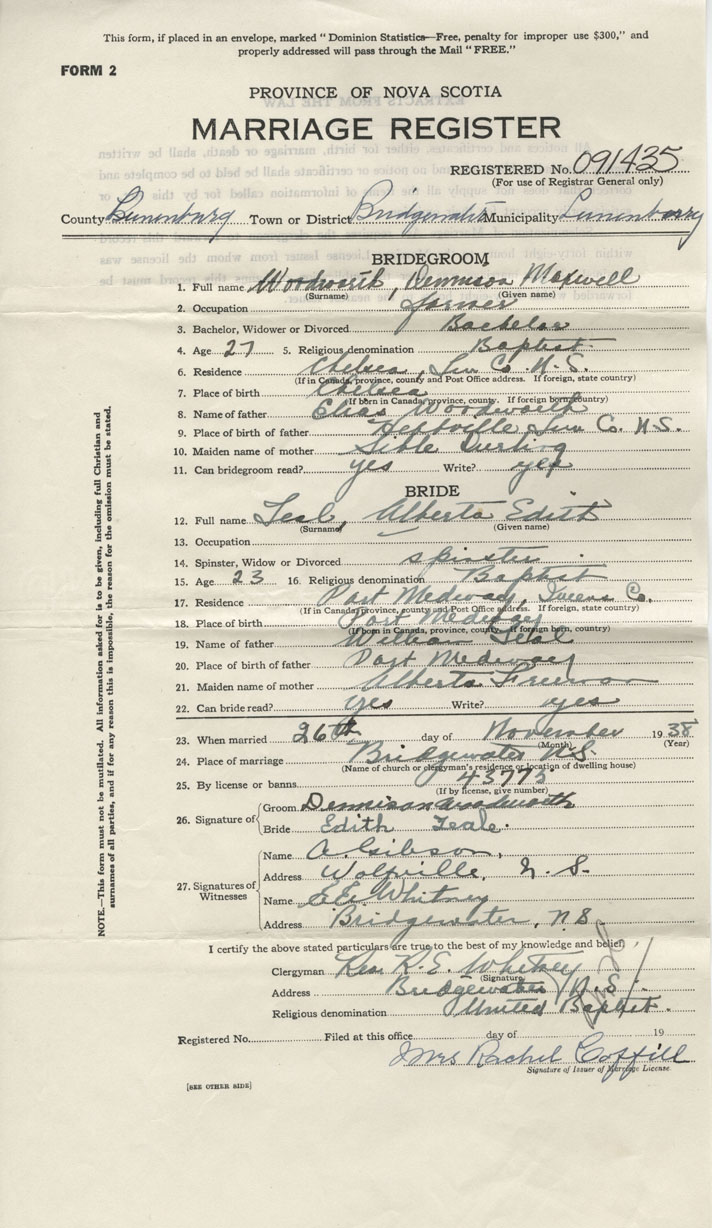 This form, if placed in an envelope, marked "Dominion Statistics—Free, penalty for improper use $300," and
properly addressed will pass through the Mail "FREE."
FORM 2
PROVINCE OF NOVA SCOTIA
MARRIAGE REGISTER
REGISTERED No. 091435
(For use of Registrar General only)
County Lunenburg Town or District Bridgewater Municipality Lunenburg
BRIDEGROOM
1. Full name Woodworth, Dennison Maxwell
(Surname) (Given name)
2. Occupation farmer
3. Bachelor, Widower or Divorced Bachelor
4. Age 27 5. Religious denomination Baptist
6. Residence Chelsea, Lun Co. N.S.
(If in Canada, province, county and Post Office address. If foreign, state country)
7. Place of birth Chelsea
(If born in Canada, province, county. If foreign born, country)
8. Name of father Elias Woodworth
9. Place of birth of father Lun Co. N.S.
10. Maiden name of mother
11. Can bridegroom read? yes Write? yes
BRIDE
12. Full name Teal, Alberta Edith
(Surname) (Given name)
13. Occupation
14. Spinster, Widow or Divorced spinster
15. Age 23 16. Religious denomination Baptist
17. Residence Port Medway, Queens Co.
(If in Canada, province, county and Post Office address. If foreign, state country)
18. Place of birth Port Medway
(If born in Canada, province, county. If foreign born, country)
19. Name of father William Teal
20. Place of birth of father Port Medway
21. Maiden name of mother Alberta Freeman
22. Can bride read? yes Write? yes
23. When married 26th day of November 1938
(Month) (Year)
24. Place of marriage Bridgewater N.S.
(Name of church or clergyman's residence or location of dwelling house)
25. By license or banns 43773
(If by license, give number)
26. Signature of Groom Dennison Woodworth
Bride Edith Teale.
27. Signatures of Witnesses
Name A. Gibson,
Address Wolfville, N.S.
Name E.E. Whitney
Address Bridgewater, N.S.
I certify the above stated particulars are true to the best of my knowledge and belief,
Clergyman Rev R.E. Whitney
(Signature)
Address Bridgewater N.S.
Religious denomination United Baptist.
Registered No. Filed at this office day of 19
Mrs Rachel Coffill
Signature of Issuer of Marriage License.
[SEE OTHER SIDE]
NOTE.—This form must not be mutilated. All information asked for is to be given, including full Christian and
surnames of all parties, and if for any reason this is impossible, the reason for the omission must be stated.